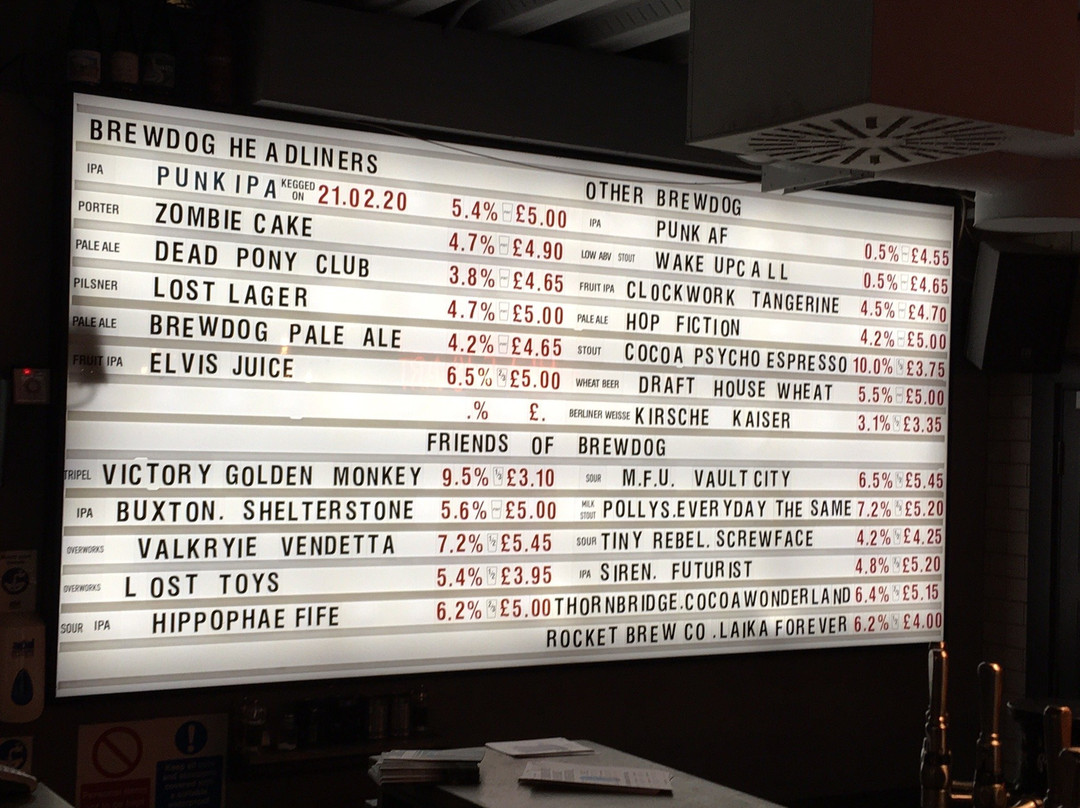 BREWDOG HEADLINERS
IPA PUNK IPA KEGGED ON 21.02.20 5.4% £5.00
PORTER ZOMBIE CAKE 4.7% £4.90
PALE ALE DEAD PONY CLUB 3.8% £4.65
PILSNER LOST LAGER 4.7% £5.00
PALE ALE BREWDOG PALE ALE 4.2% £4.65
FRUIT IPA ELVIS JUICE 6.5% £5.00
.% £.
OTHER BREWDOG
IPA PUNK AF 0.5% £4.55
LOW ABV STOUT WAKE UPCALL 0.5% £4.65
FRUIT IPA CLOCKWORK TANGERINE 4.5% £4.70
PALE ALE HOP FICTION 4.2% £5.00
STOUT COCOA PSYCHO ESPRESSO 10.0% £3.75
WHEAT BEER DRAFT HOUSE WHEAT 5.5% £5.00
BERLINER WEISSE KIRSCHE KAISER 3.1% £3.35
FRIENDS OF BREWDOG
TRIPEL VICTORY GOLDEN MONKEY 9.5% £3.10
IPA BUXTON. SHELTERSTONE 5.6% £5.00
OVERWORKS VALKRYIE VENDETTA 7.2% £5.45
OVERWORKS LOST TOYS 5.4% £3.95
SOUR IPA HIPPOPHAE FIFE 6.2% £5.00
SOUR M.F.U. VAULT CITY 6.5% £5.45
MILK STOUT POLLYS.EVERYDAY THE SAME 7.2% £5.20
SOUR TINY REBEL. SCREWFACE 4.2% £4.25
IPA SIREN. FUTURIST 4.8% £5.20
THORNBRIDGE.COCOAWONDERLAND 6.4% £5.15
ROCKET BREW CO .LAIKA FOREVER 6.2% £4.00